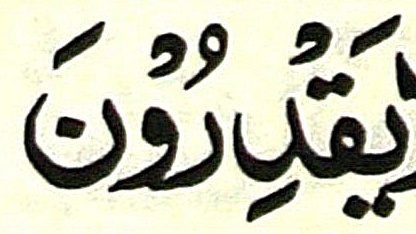 يَقْدِرُوْنَ